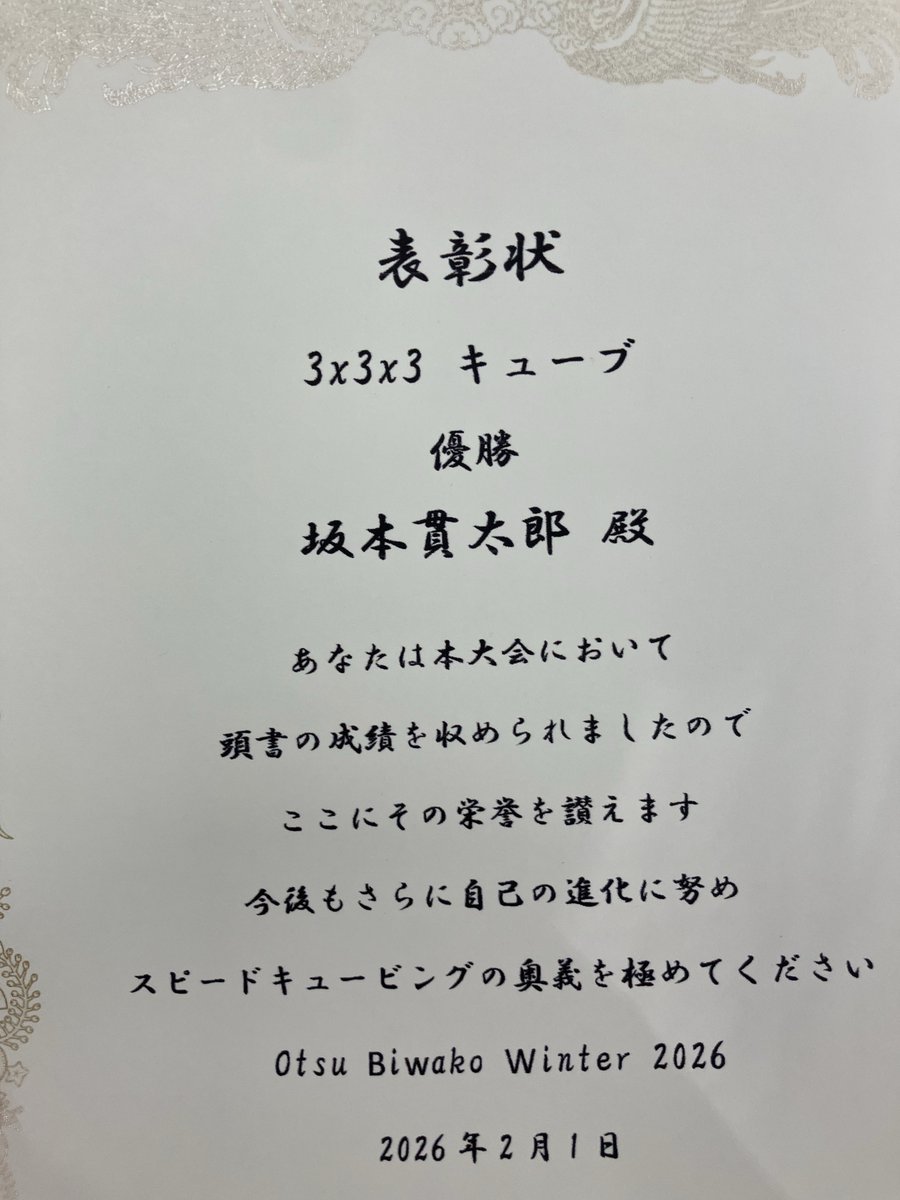 表彰状
3x3x3 キューブ
優勝
坂本貫太郎 殿
あなたは本大会において
頭書の成績を収められましたので
ここにその栄誉を讃えます
今後もさらに自己の進化に努め
スピードキュービングの奥義を極めてください
Otsu Biwako Winter 2026
2026年2月1日